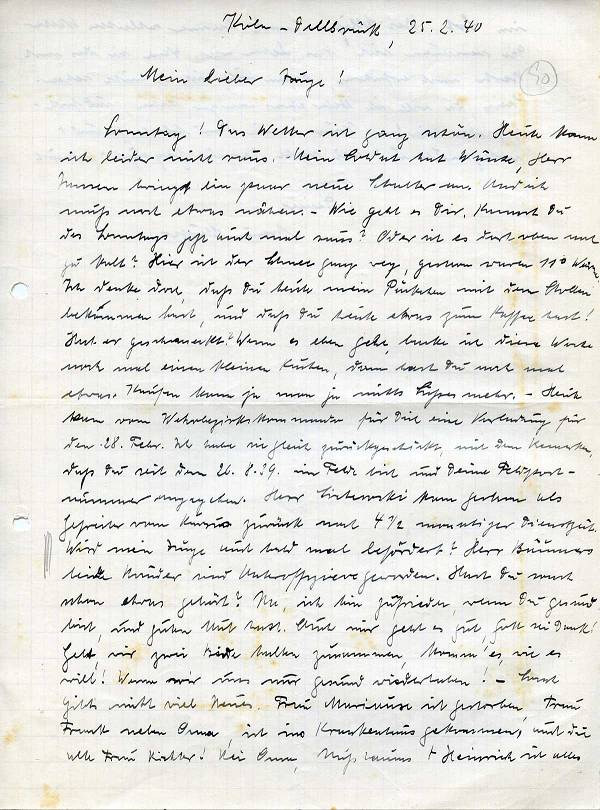 Köln-Dellbrück, 25.2.40
50
Mein lieber Junge!
Sonntag! Das Wetter ist ganz schön. Heute kann
ich leider nicht raus. Mein Soldat hat Wünsche, Herr
bringt ein paar neue Schalter an. Und ich
muß noch etwas nähen. – Wie geht es Dir, kannst Du
des Sonntags jetzt auch mal raus? Oder ist es dort oben noch
zu kalt? Hier ist der Schnee ganz weg, gestern waren 11° Wärme.
Ich denke doch, daß Du heute mein Päckchen mit dem Stollen
bekommen hast, und daß Du heute etwas zum Kaffee hast!
Hat er geschmeckt? Wenn es eben geht, backe ich diese Woche
noch mal einen kleinen Kuchen, dann hast Du noch mal
etwas. Kaufen kann man ja nichts Süßes mehr. – Heute
kam vom Wehrbezirkskommando für Dich eine Vorladung für
den 28. Febr. Ich habe sie gleich zurückgeschickt, mit dem Bemerken,
daß Du seit dem 26.8.39. im Felde bist und Deine Feldpost-
nummer angegeben. Herr kam gestern als
Gefreiter vom Kursus zurück nach 4 1/2 monatiger Dienstzeit.
Wird mein Junge auch bald mal befördert? Herr
beide Brüder sind Unteroffiziere geworden. Hast Du noch
schon etwas gehört? Na, ich bin zufrieden, wenn Du gesund
bist, und guten Mut hast. Auch mir geht es gut, Gott sei Dank!
Gelt, wir zwei beide halten zusammen, komme es, wie es
will! Wenn wir uns nur gesund wiederhaben! – Sonst
gibts nicht viel Neues. Frau ist gestorben, Frau
Frank neben Oma, ist ins Krankenhaus gekommen, und die
alte Frau Richter! Bei Oma, + Heinrich ist alles